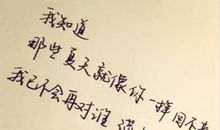 我知道
那些夏天就像你一样回不来
我已不会再对谁 满